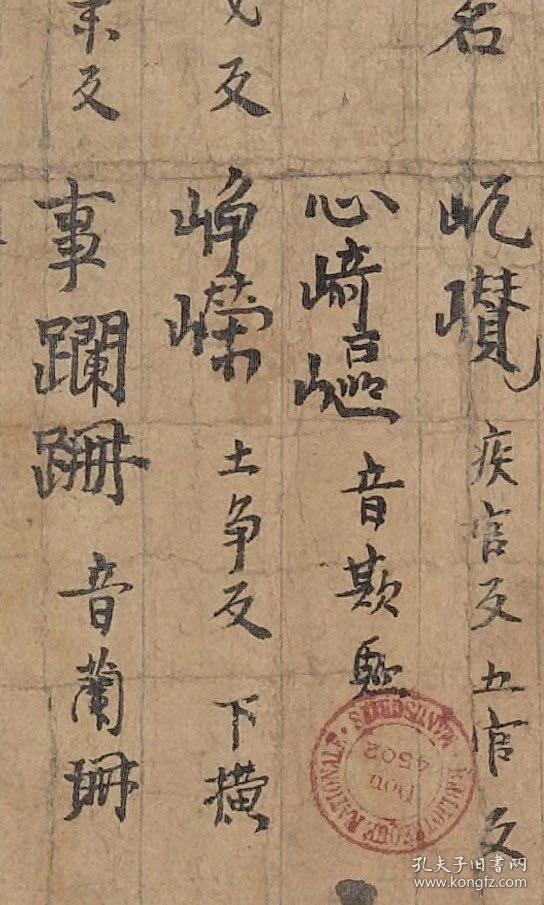 名
屼巑疾官反五官反
心崎嶇音欺駈
反
崢嶸士争反下横
反
事躝跚音蘭珊
BIBLIOTHEQUE NATIONALE MANUSCRITS
Don
4502
孔夫子旧书网
www.kongfz.com